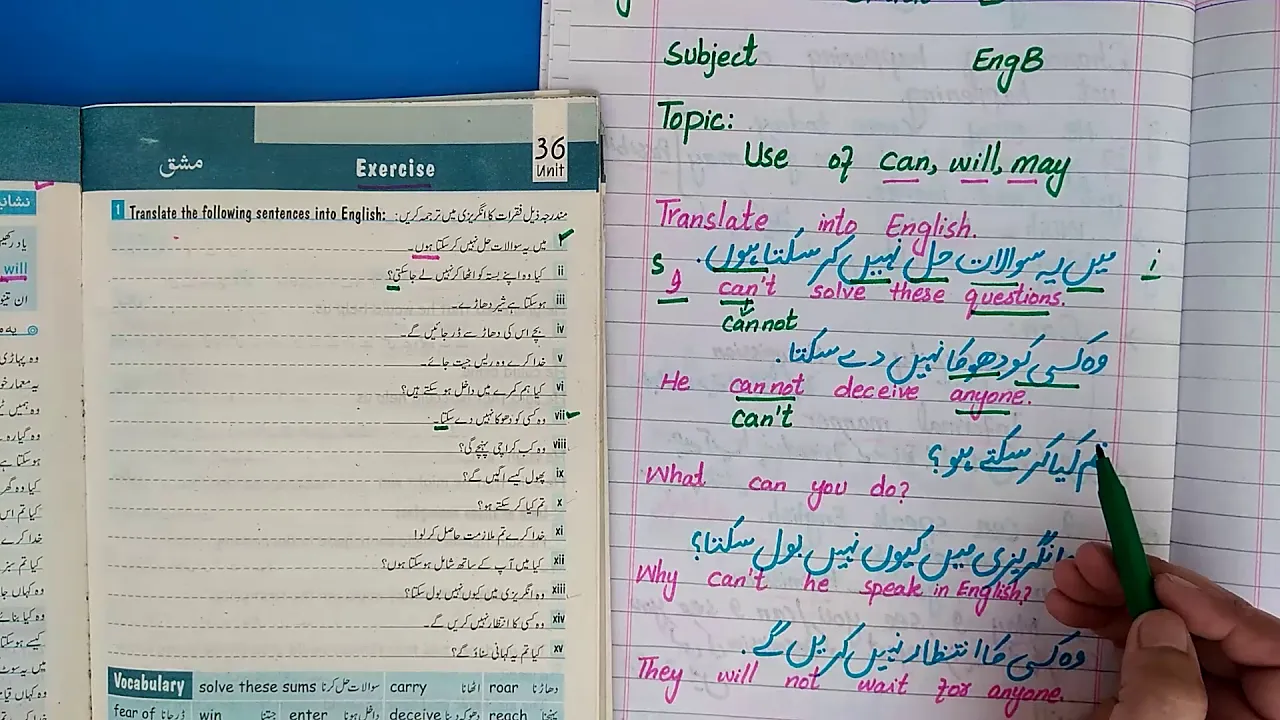 مشق
Exercise
36
Unit
1 Translate the following sentences into English: مندرجہ ذیل فقرات کا انگریزی میں ترجمہ کریں:
میں یہ سوالات حل نہیں کر سکتا ہوں۔
ii کیا وہ اپنے بستہ کو اٹھا کر نہیں لے جا سکتی؟
iii ہو سکتا ہے شیر دھاڑے۔
iv بچے اس کی دھاڑ سے ڈر جائیں گے۔
v خدا کرے وہ ریس جیت جائے۔
vi کیا ہم کمرے میں داخل ہو سکتے ہیں؟
vii وہ کسی کو دھوکا نہیں دے سکتا۔
viii وہ کب کراچی پہنچے گی؟
ix پھول کیسے اگیں گے؟
x تم کیا کر سکتے ہو؟
xi خدا کرے تم ملازمت حاصل کر لو!
xii کیا میں آپ کے ساتھ شامل ہو سکتا ہوں؟
xiii وہ انگریزی میں کیوں نہیں بول سکتا؟
xiv وہ کسی کا انتظار نہیں کریں گے۔
xv کیا تم یہ کہانی سناؤ گے؟
Vocabulary solve these sums سوالات حل کرنا carry اٹھانا roar دھاڑنا
fear of ڈر جانا win جیتنا enter داخل ہونا deceive دھوکہ دینا reach پہنچنا
will
Subject EngB
Topic:
Use of can, will, may
Translate into English.
i میں یہ سوالات حل نہیں کر سکتا ہوں.
S I can't solve these questions.
cannot
وہ کسی کو دھوکا نہیں دے سکتا.
He cannot deceive anyone.
can't
کیا کر سکتے ہو؟
What can you do?
انگریزی میں کیوں نہیں بول سکتا؟
Why can't he speak in English?
وہ کسی کا انتظار نہیں کریں گے.
They will not wait for anyone.